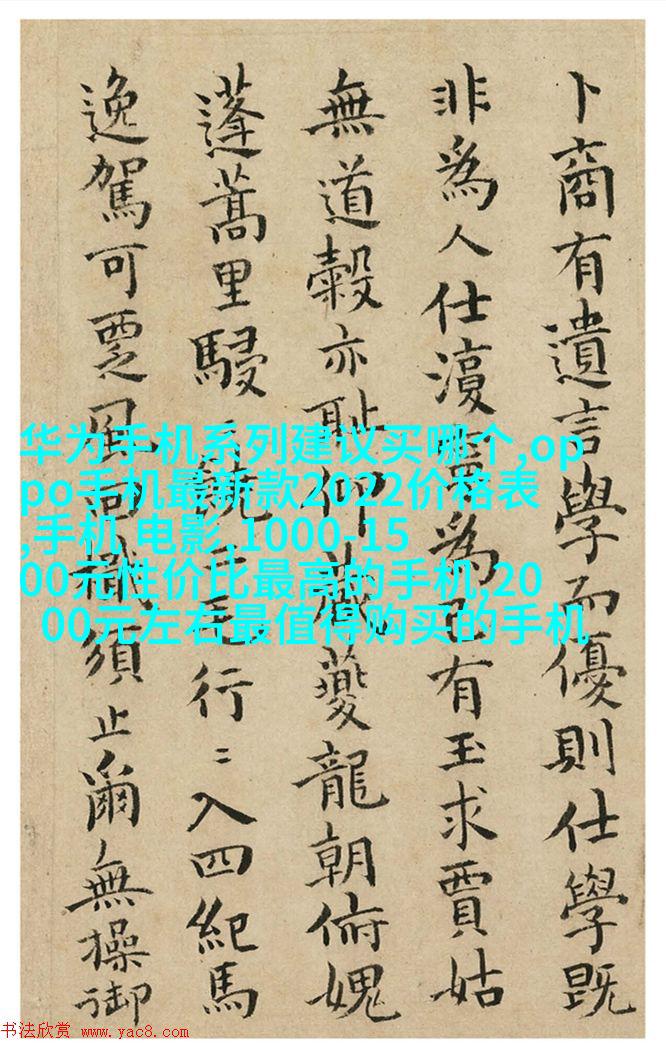 卜商有遺言學而優則仕學既
非為人仕為己有玉求賈姑
無道穀亦恥仰夔龍朝俯媿
蓬蒿里駸〻二毛行〻入四紀馬
逸駕可覂風須止爾無操御
华为手机系列建议买哪个,op
po手机最新款2022价格表
,手机 电影,1000-15
00元性价比最高的手机,20
00元左右最值得购买的手机
书法欣赏 www.yac8.com